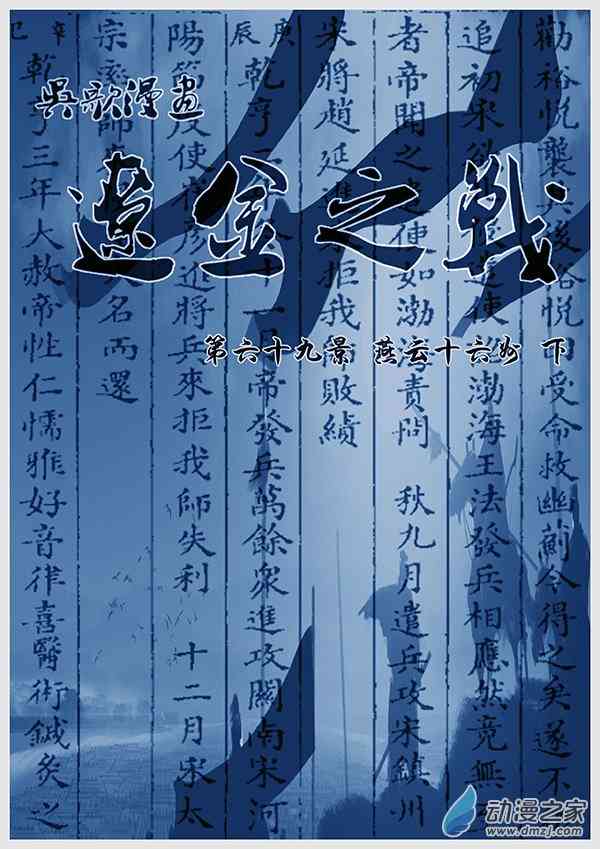 吳歌漫畫
遼金之戰
第六十九景 燕云十六州 下
勸裕悅襲兵後裕悅受命救幽薊今得之矣遂不
追初宋欲遣使渤海王法發兵相應然竟無
者帝聞之遣使如渤海責問 秋九月遣兵攻宋鎮州
宋將趙延進拒我敗績
庚辰 乾亨二十一月帝發兵萬餘眾進攻關南宋河
陽節度使崔彥進將兵來拒我師失利 十二月宋太
宗率師大名而還
辛巳 乾亨三年大赦帝性仁懦雅好音律喜醫術鍼灸之
动漫之家
www.dmzj.com